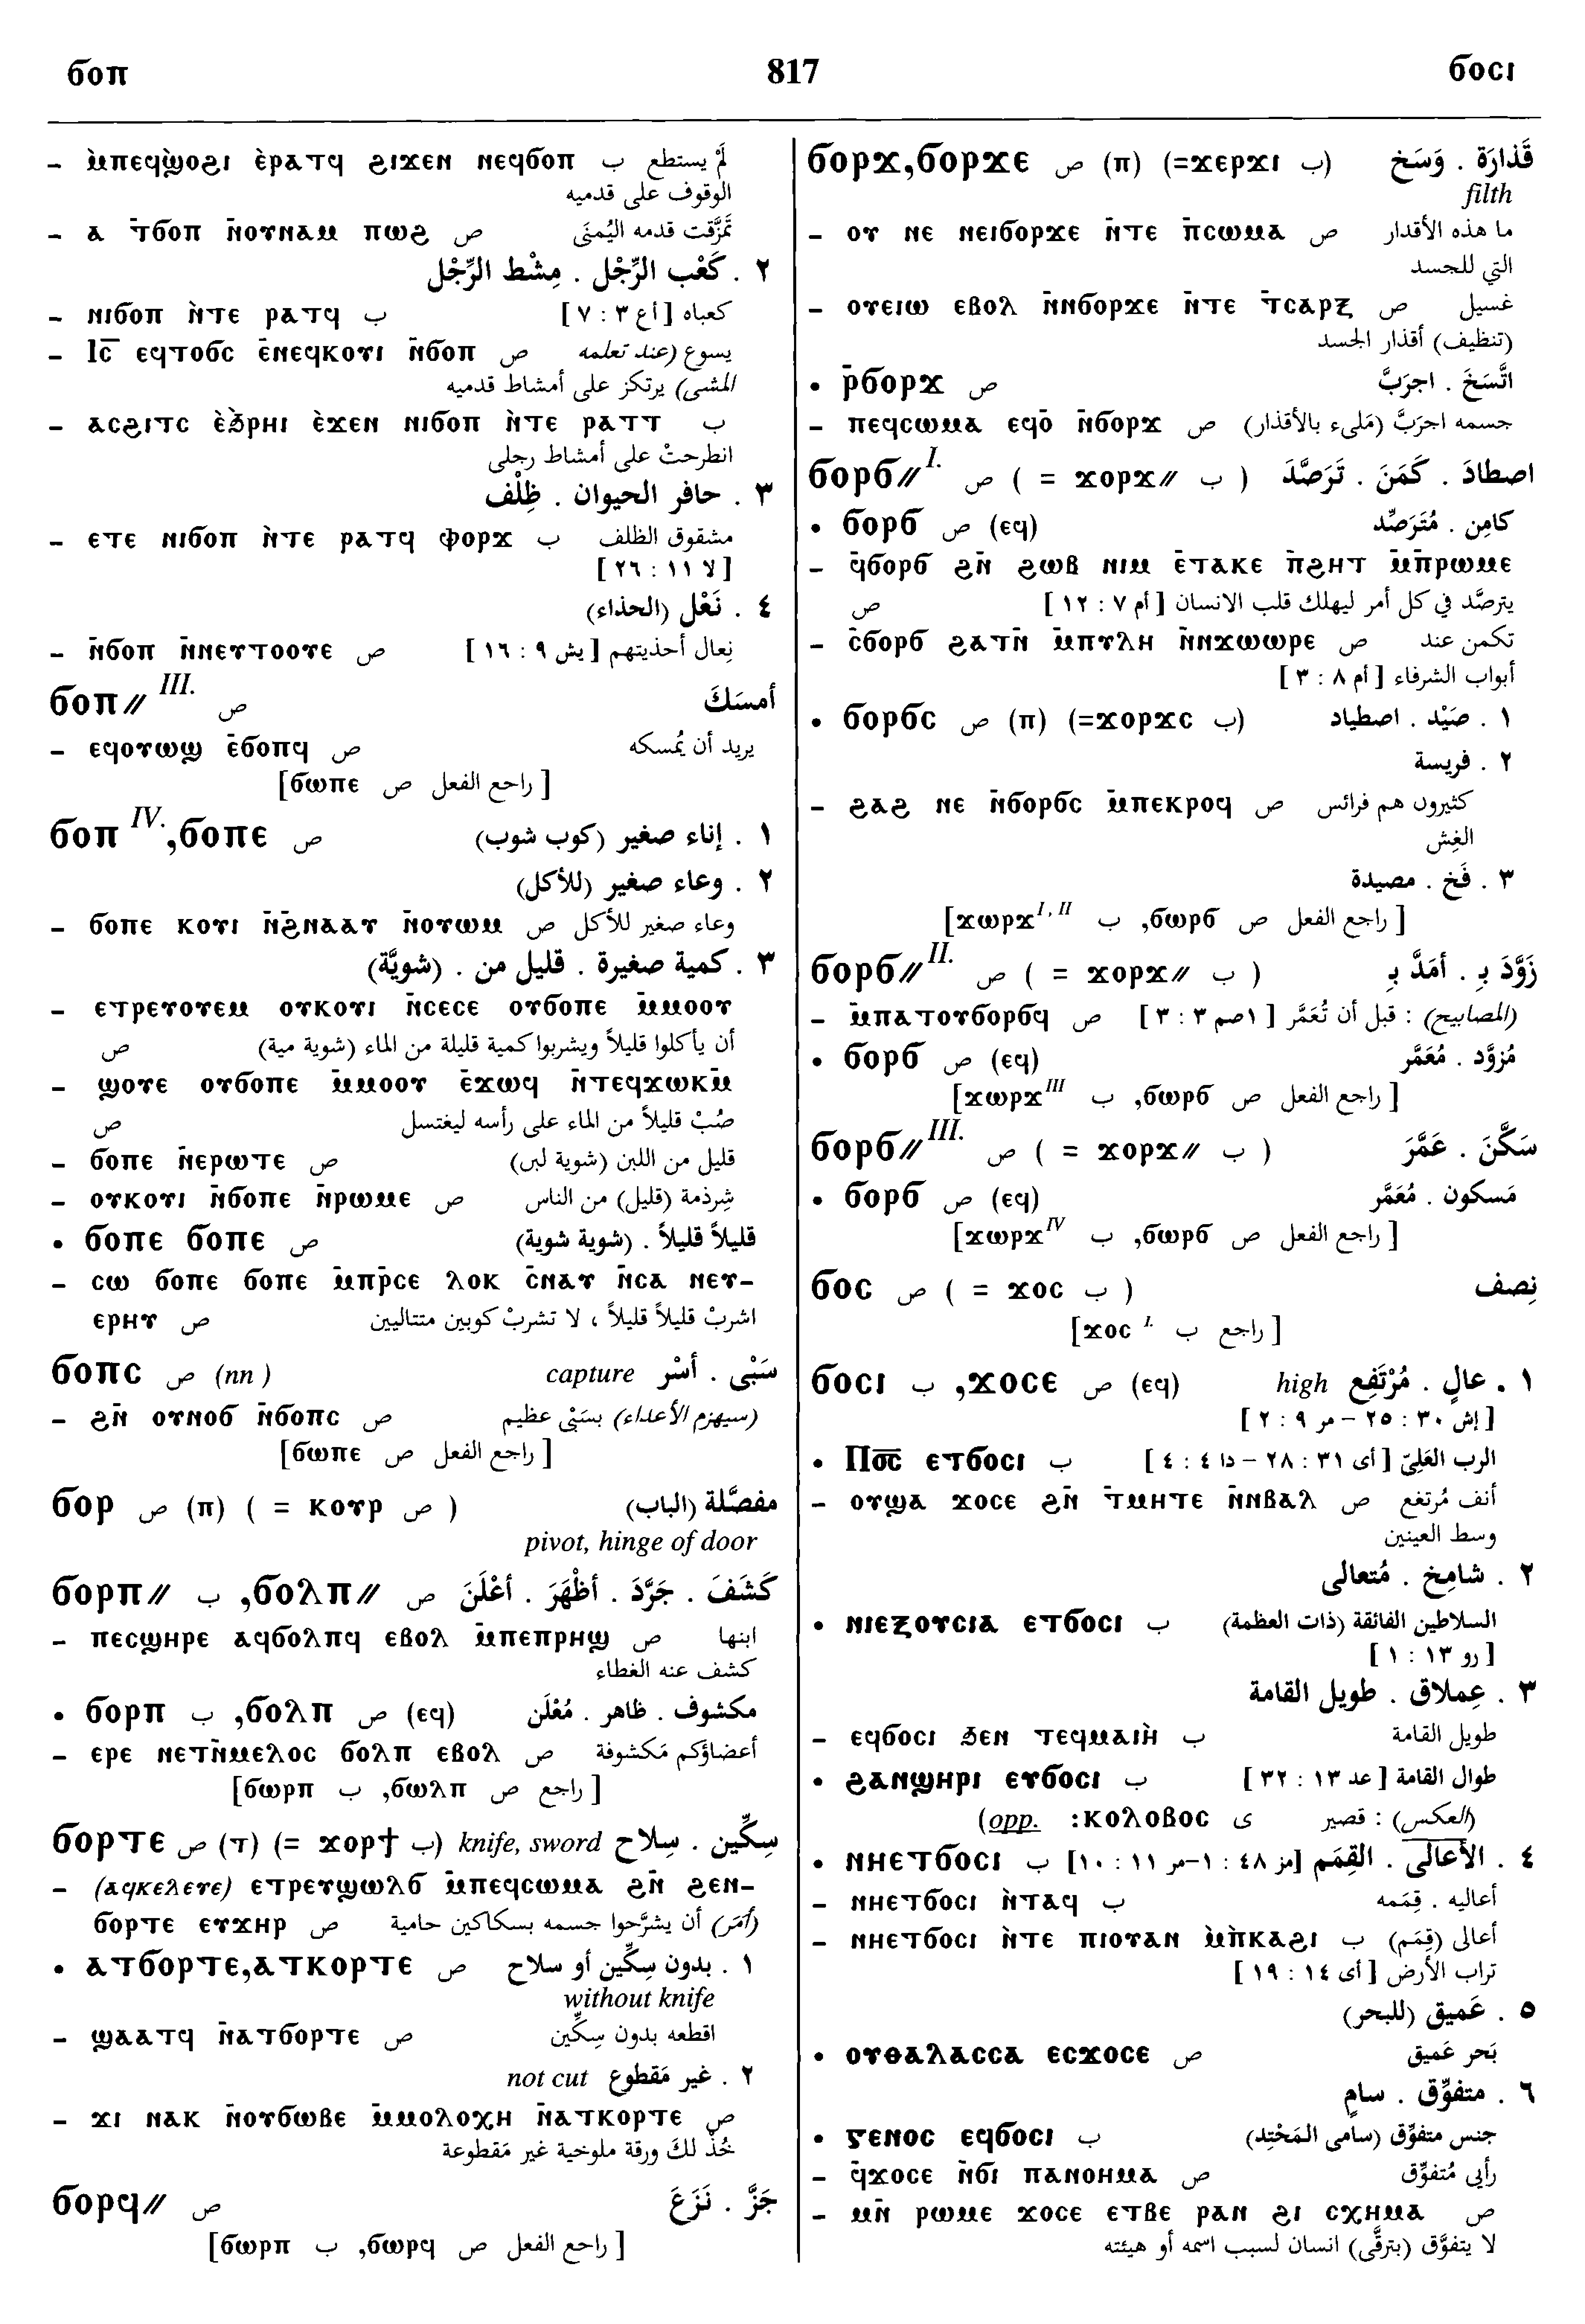 ϭⲟⲡ 817 ϭⲟⲥⲓ
– ⲙ̀ⲡⲉϥϣ̀ⲟϩⲓ ⲉ̀ⲣⲁⲧϥ ϩⲓϫⲉⲛ ⲛⲉϥϭⲟⲡ ب لَمْ يستطع
الوقوف على قدميه
– ⲁ ⲧ̄ϭⲟⲡ ⲛ̄ⲟⲩⲛⲁⲙ ⲡⲱϩ ص تمَزَّقت قدمه اليُمنَى
٢ . كَعْب الرِّجْل . مِشْط الرِّجْل
– ⲛⲓϭⲟⲡ ⲛ̀ⲧⲉ ⲣⲁⲧϥ ب كعباه [أع ٣ : ٧]
– ⲓ̅ⲥ̅ ⲉϥⲧⲟϭⲥ ⲉ̄ⲛⲉϥⲕⲟⲩⲓ ⲛ̄ϭⲟⲡ ص يسوع (عند تعلمه
المشى) يرتكز على أمشاط قدميه
– ⲁⲥϩⲓⲧⲥ ⲉ̀ϧⲣⲏⲓ ⲉ̀ϫⲉⲛ ⲛⲓϭⲟⲡ ⲛ̀ⲧⲉ ⲣⲁⲧⲧ ب
انطرحتْ على أمشاط رجلى
٣ . حافر الحيوان . ظِلْف
– ⲉⲧⲉ ⲛⲓϭⲟⲡ ⲛ̀ⲧⲉ ⲣⲁⲧϥ ⲫⲟⲣϫ ب مشقوق الظلف
[لا ١١ : ٢٦]
٤ . نَعْل (الحذاء)
– ⲛ̄ϭⲟⲡ ⲛ̄ⲛⲉⲩⲧⲟⲟⲩⲉ ص نِعال أحذيتهم [يش ٩ : ١٦]
ϭⲟⲡ// III. ص أمسَكَ
– ⲉϥⲟⲩⲱϣ ⲉ̄ϭⲟⲡϥ ص يريد أن يُمسكه
[راجع الفعل ص ϭⲱⲡⲉ]
ϭⲟⲡ IV.,ϭⲟⲡⲉ ص ١ . إناء صغير (كوب شوب)
٢ . وعاء صغير (للأكل)
– ϭⲟⲡⲉ ⲕⲟⲩⲓ ⲛ̄ϩ̄ⲛⲁⲁⲩ ⲛ̄ⲟⲩⲱⲙ ص وعاء صغير للأكل
٣ . كمية صغيرة . قليل من . (شويَّة)
– ⲉⲧⲣⲉⲩⲟⲩⲉⲙ ⲟⲩⲕⲟⲩⲓ ⲛ̄ⲥⲉⲥⲉ ⲟⲩϭⲟⲡⲉ ⲙ̄ⲙⲟⲟⲩ
أن يأكلوا قليلاً ويشربوا كمية قليلة من الماء (شوية مية) ص
– ϣⲟⲩⲉ ⲟⲩϭⲟⲡⲉ ⲙ̄ⲙⲟⲟⲩ ⲉ̄ϫⲱϥ ⲛ̄ⲧⲉϥϫⲱⲕⲙ̄
صُبْ قليلاً من الماء على رأسه ليغتسل ص
– ϭⲟⲡⲉ ⲛ̄ⲉⲣⲱⲧⲉ ص قليل من اللبن (شوية لبن)
– ⲟⲩⲕⲟⲩⲓ ⲛ̄ϭⲟⲡⲉ ⲛ̄ⲣⲱⲙⲉ ص شِرذمة (قليل) من الناس
• ϭⲟⲡⲉ ϭⲟⲡⲉ ص قليلاً قليلاً . (شوية شوية)
– ⲥⲱ ϭⲟⲡⲉ ϭⲟⲡⲉ ⲙ̄ⲡⲣ̄ⲥⲉ ⲗⲟⲕ ⲥ̄ⲛⲁⲩ ⲛ̄ⲥⲁ ⲛⲉⲩ-
ⲉⲣⲏⲩ ص اشربْ قليلاً قليلاً ، لا تشربْ كوبين متتاليين
ϭⲟⲡⲥ ص (nn) capture سَبْى . أسْر
– ϩⲛ̄ ⲟⲩⲛⲟϭ ⲛ̄ϭⲟⲡⲥ ص (سيهزم الأعداء) بسَبْىٍ عظيم
[راجع الفعل ص ϭⲱⲡⲉ]
ϭⲟⲣ ص (ⲡ) ( = ⲕⲟⲩⲣ ص ) مفصَّلة (الباب)
pivot, hinge of door
ϭⲟⲣⲡ// ب ,ϭⲟⲗⲡ// ص كَشَفَ . جَرَّدَ . أظْهَرَ . أعْلَنَ
– ⲡⲉⲥϣⲏⲣⲉ ⲁϥϭⲟⲗⲡϥ ⲉⲃⲟⲗ ⲙ̄ⲡⲉⲡⲣⲏϣ ص ابنها
كشف عنه الغطاء
• ϭⲟⲣⲡ ب ,ϭⲟⲗⲡ ص (ⲉϥ) مكشوف . ظاهر . مُعْلَن
– ⲉⲣⲉ ⲛⲉⲧⲛ̄ⲙⲉⲗⲟⲥ ϭⲟⲗⲡ ⲉⲃⲟⲗ ص أعضاؤكم مَكشوفة
[راجع ص ϭⲱⲗⲡ, ب ϭⲱⲣⲡ]
ϭⲟⲣⲧⲉ ص (ⲧ) (= ϫⲟⲣϯ ب) knife, sword سِكِّين . سِلاح
– (ⲁϥⲕⲉⲗⲉⲩⲉ) ⲉⲧⲣⲉⲩϣⲱⲗϭ ⲙ̄ⲡⲉϥⲥⲱⲙⲁ ϩⲛ̄ ϩⲉⲛ-
ϭⲟⲣⲧⲉ ⲉⲩϫⲏⲣ ص (أمَر) أن يشرَّحوا جسمه بسكاكين حامية
• ⲁⲧϭⲟⲣⲧⲉ,ⲁⲧⲕⲟⲣⲧⲉ ص ١ . بدون سِكِّين أو سلاح
without knife
– ϣⲁⲁⲧϥ ⲛ̄ⲁⲧϭⲟⲣⲧⲉ ص اقطعه بدون سِكِّين
٢ . غير مَقطوع not cut
– ϫⲓ ⲛⲁⲕ ⲛ̄ⲟⲩϭⲱⲃⲉ ⲙ̄ⲙⲟⲗⲟⲭⲏ ⲛ̄ⲁⲧⲕⲟⲣⲧⲉ ص
خُذْ لكَ ورقة ملوخية غير مَقطوعة
ϭⲟⲣϥ// ص جَزَّ . نَزَعَ
[راجع الفعل ص ϭⲱⲣϥ, ب ϭⲱⲣⲡ]
ϭⲟⲣϫ,ϭⲟⲣϫⲉ ص (ⲡ) (=ϫⲉⲣϫⲓ ب) قَذارَة . وَسَخ
filth
– ⲟⲩ ⲛⲉ ⲛⲉⲓϭⲟⲣϫⲉ ⲛ̄ⲧⲉ ⲡ̄ⲥⲱⲙⲁ ص ما هذه الأقذار
التي للجسد
– ⲟⲩⲉⲓⲱ ⲉⲃⲟⲗ ⲛ̄ⲛϭⲟⲣϫⲉ ⲛ̄ⲧⲉ ⲧ̄ⲥⲁⲣⲝ ص غسيل
(تنظيف) أقذار الجسد
• ⲣ̄ϭⲟⲣϫ ص اتَّسَخَ . اجرَبَّ
– ⲡⲉϥⲥⲱⲙⲁ ⲉϥⲟ̄ ⲛ̄ϭⲟⲣϫ ص جسمه اجرَبَّ (مَلىء بالأقذار)
ϭⲟⲣϭ// I. ص ( = ϫⲟⲣϫ// ب ) اصطادَ . كَمَنَ . تَرَصَّدَ
• ϭⲟⲣϭ ص (ⲉϥ) كامِن . مُتَرَصِّد
– ϥ̄ϭⲟⲣϭ ϩⲛ̄ ϩⲱⲃ ⲛⲓⲙ ⲉ̄ⲧⲁⲕⲉ ⲡ̄ϩⲏⲧ ⲙ̄ⲡⲣⲱⲙⲉ
يترصَّد في كل أمر ليهلك قلب الانسان [أم ٧ : ١٢] ص
– ⲥ̄ϭⲟⲣϭ ϩⲁⲧⲛ̄ ⲙ̄ⲡⲩⲗⲏ ⲛ̄ⲛϫⲱⲱⲣⲉ ص تكمن عند
أبواب الشرفاء [أم ٨ : ٣]
• ϭⲟⲣϭⲥ ص (ⲡ) (=ϫⲟⲣϫⲥ ب) ١ . صَيْد . اصطياد
٢ . فريسة
– ϩⲁϩ ⲛⲉ ⲛ̄ϭⲟⲣϭⲥ ⲙ̄ⲡⲉⲕⲣⲟϥ ص كثيرون هم فرائس
الغِش
٣ . فَخ . مصيدة
[راجع الفعل ص ϭⲱⲣϭ, ب ϫⲱⲣϫ I, II]
ϭⲟⲣϭ// II. ص ( = ϫⲟⲣϫ// ب ) زَوَّدَ بِـ . أمَدَّ بِـ
– ⲙ̄ⲡⲁⲧⲟⲩϭⲟⲣϭϥ ص (المصابيح) : قبل أن تُعَمَّر [١صم ٣ : ٣]
• ϭⲟⲣϭ ص (ⲉϥ) مُزوَّد . مُعَمَّر
[راجع الفعل ص ϭⲱⲣϭ, ب ϫⲱⲣϫ III]
ϭⲟⲣϭ// III. ص ( = ϫⲟⲣϫ// ب ) سَكَّنَ . عَمَّرَ
• ϭⲟⲣϭ ص (ⲉϥ) مَسكون . مُعَمَّر
[راجع الفعل ص ϭⲱⲣϭ, ب ϫⲱⲣϫ IV]
ϭⲟⲥ ص ( = ϫⲟⲥ ب ) نِصف
[راجع ب ϫⲟⲥ I.]
ϭⲟⲥⲓ ب ,ϫⲟⲥⲉ ص (ⲉϥ) high ١ . عالٍ . مُرْتَفِع
[إش ٣٠ : ٢٥ – مر ٩ : ٢]
• Ⲡⲟ̅ⲥ̅ ⲉⲧϭⲟⲥⲓ ب الرب العَلِيّ [أى ٣١ : ٢٨ – دا ٤ : ٤]
– ⲟⲩϣⲁ ϫⲟⲥⲉ ϩⲛ̄ ⲧ̄ⲙⲏⲧⲉ ⲛ̄ⲛⲃⲁⲗ ص أنف مُرتفع
وسط العينين
٢ . شامِخ . مُتعالى
• ⲛⲓⲉⲝⲟⲩⲥⲓⲁ ⲉⲧϭⲟⲥⲓ ب السلاطين الفائقة (ذات العظمة)
[رو ١٣ : ١]
٣ . عِملاق . طويل القامة
– ⲉϥϭⲟⲥⲓ ϧⲉⲛ ⲧⲉϥⲙⲁⲓⲏ̀ ب طويل القامة
• ϩⲁⲛϣⲏⲣⲓ ⲉⲩϭⲟⲥⲓ ب طوال القامة [عد ١٣ : ٣٢]
(opp. :ⲕⲟⲗⲟⲃⲟⲥ ى (العكس) : قصير
• ⲛⲏⲉⲧϭⲟⲥⲓ ب ٤ . الأعالى . القِمَم [مز ٤٨ : ١–مر ١١ : ١٠]
– ⲛⲏⲉⲧϭⲟⲥⲓ ⲛ̀ⲧⲁϥ ب أعاليه . قِمَمه
– ⲛⲏⲉⲧϭⲟⲥⲓ ⲛ̀ⲧⲉ ⲡⲓⲟⲩⲁⲛ ⲙ̀ⲡ̀ⲕⲁϩⲓ ب أعالى (قِمَم)
تراب الأرض [أى ١٤ : ١٩]
٥ . عَميق (للبحر)
• ⲟⲩⲑⲁⲗⲁⲥⲥⲁ ⲉⲥϫⲟⲥⲉ ص بَحر عَميق
٦ . متفوِّق . سامٍ
• ⲅⲉⲛⲟⲥ ⲉϥϭⲟⲥⲓ ب جنس متفوِّق (سامى المَحْتِد)
– ϥ̄ϫⲟⲥⲉ ⲛ̄ϭⲓ ⲡⲁⲛⲟⲏⲙⲁ ص رأيى مُتفوِّق
– ⲙⲛ̄ ⲣⲱⲙⲉ ϫⲟⲥⲉ ⲉⲧⲃⲉ ⲣⲁⲛ ϩⲓ ⲥⲭⲏⲙⲁ ص
لا يتفوَّق (يترقَّى) انسان لسبب اسمه أو هيئته